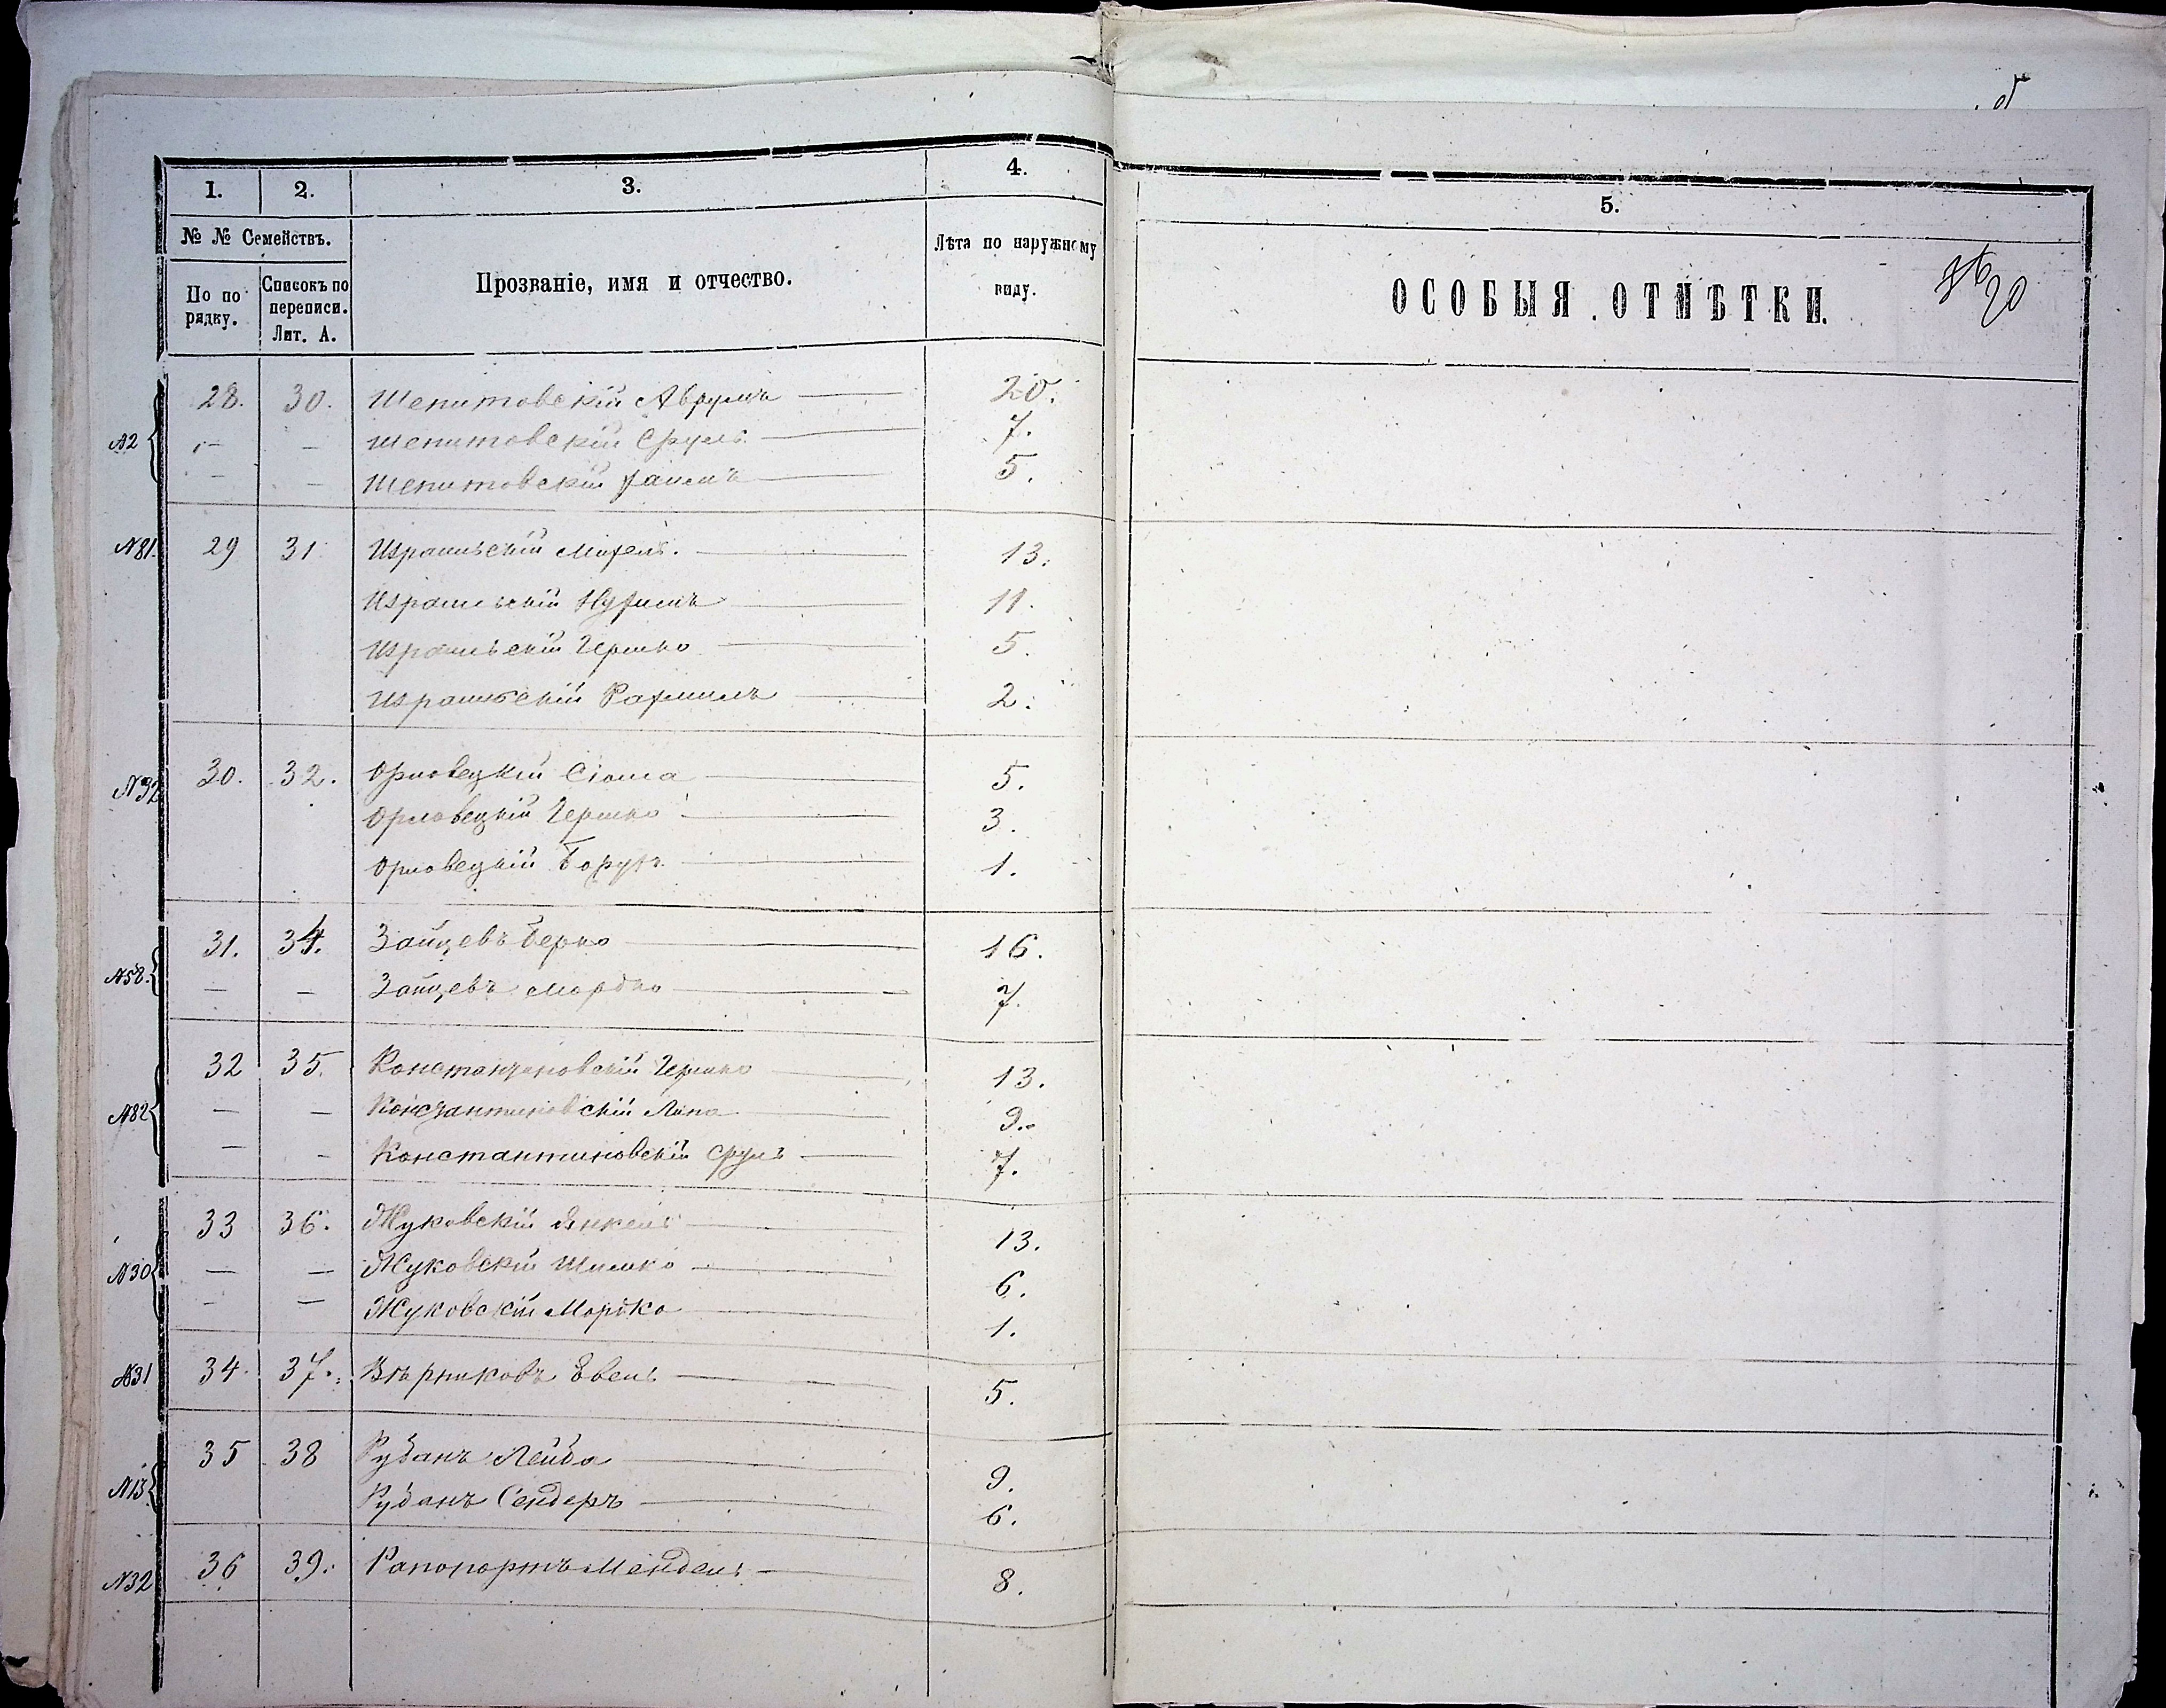 1. 2. 3. 4. 5.
№ № Семействъ.
По порядку.
Списокъ по переписи. Лит. А.
Прозваніе, имя и отчество.
Лѣта по наружному виду.
ОСОБЫЯ ОТМѢТКИ.
20
28. 30. Шепитовскій Аврумъ — 20.
— — Шепитовскій Сруль — 7.
— — Шепитовскій Хаимъ — 5.
N81. 29 31 Израильскій — 13.
Израильскій Нухимъ — 11.
Израильскій Гершко — 5.
Израильскій Рахмиль — 2.
N32 30. 32. Орловецкій Сіома — 5.
Орловецкій Гершко — 3.
Орловецкій Борухъ — 1.
N58. 31. 34. Зайцевъ Берко — 16.
— — Зайцевъ Мордко — 7.
N82 32 35. Константиновскій Гершко — 13.
— — Константиновскій Липа — 9.
— — Константиновскій Сруль — 7.
N30 33 36. Жуковскій Янкель — 13.
— — Жуковскій Шимко — 6.
— — Жуковскій Мордко — 1.
N31 34. 37. — 5.
N13 35 38 Рубанъ Лейба — 9.
Рубанъ Сендеръ — 6.
N32 36 39. Рапопортъ Мендель — 8.